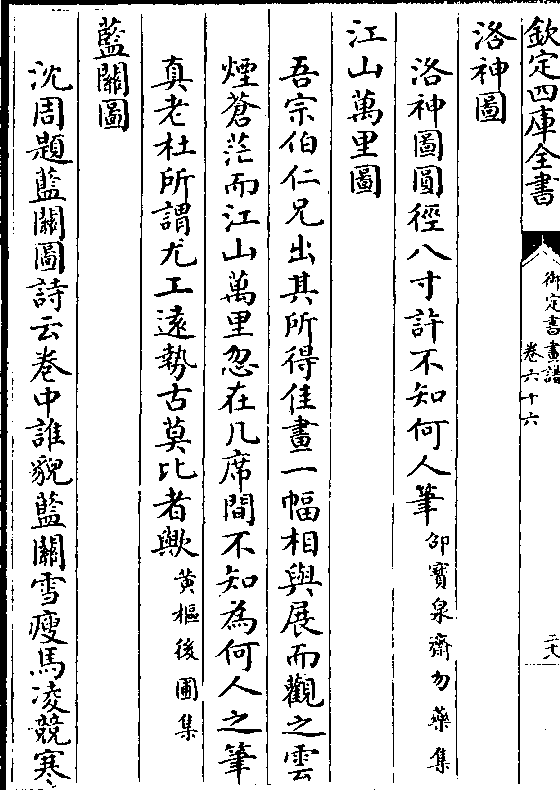 欽定四庫全書
御定書畫譜
卷六十六
二六
洛神圖
洛神圖圓徑八寸許不知何人筆邵寳泉齋勿藥集
江山萬里圖
吾宗伯仁兄出其所得佳畫一幅相與展而觀之雲
煙蒼茫而江山萬里忽在几席間不知為何人之筆
真老杜所謂尤工遠勢古莫比者歟黃樞後圃集
藍關圖
沈周題藍關圖詩云巻中誰貌藍關雪瘦馬凌競寒